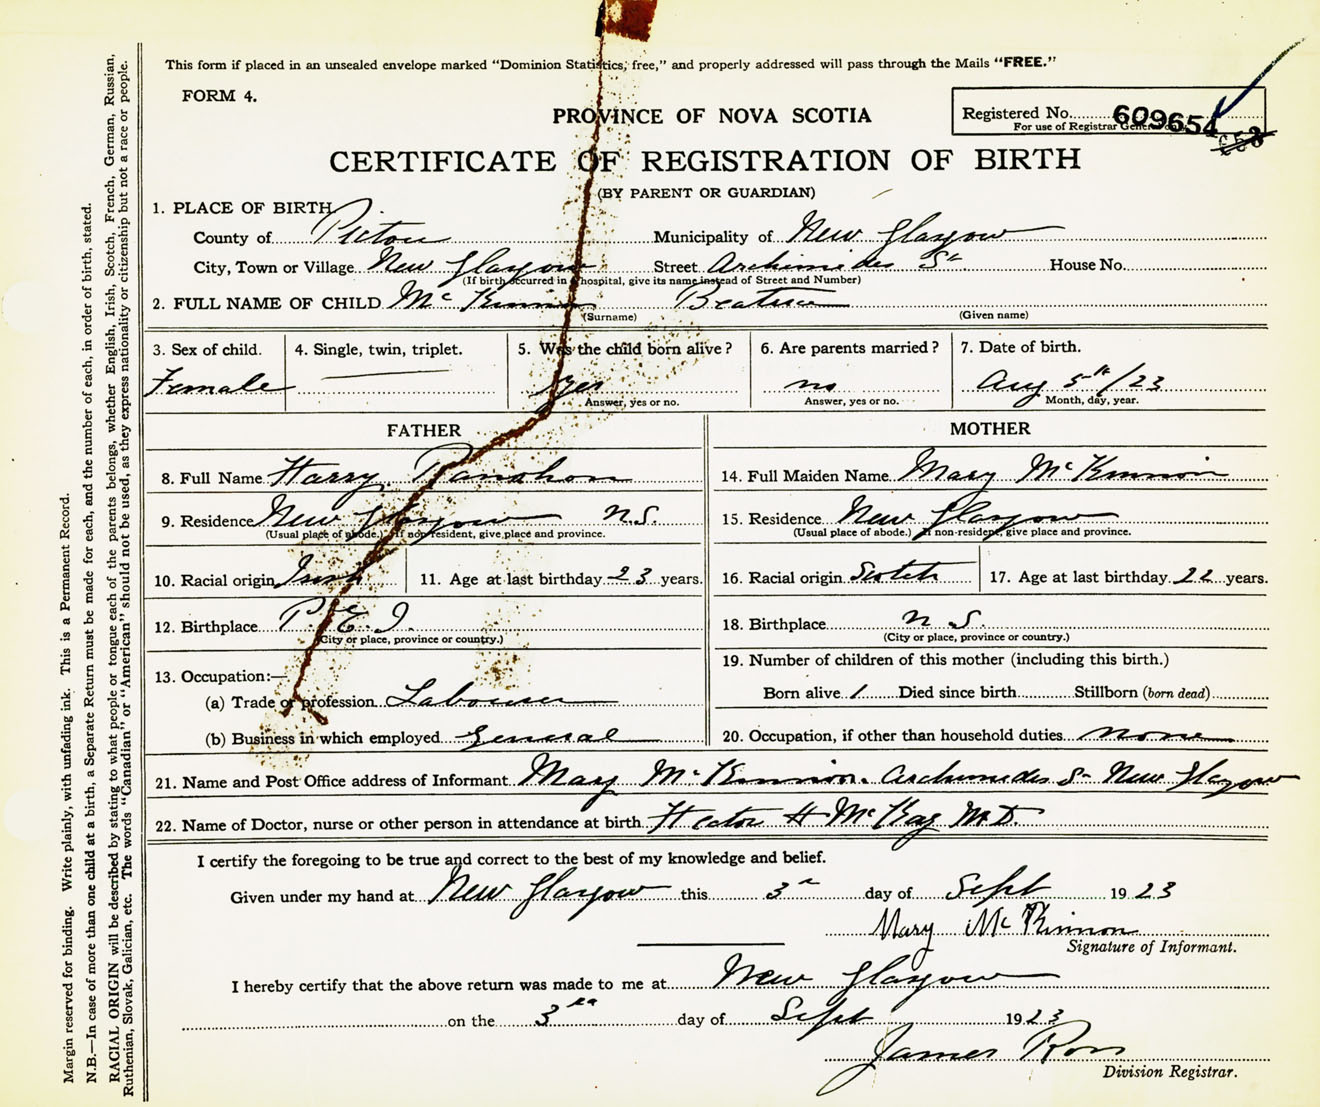 This form if placed in an unsealed envelope marked "Dominion Statistics, free," and properly addressed will pass through the Mails "FREE."
FORM 4.
PROVINCE OF NOVA SCOTIA
Registered No. 609654
For use of Registrar General only.
CERTIFICATE OF REGISTRATION OF BIRTH
(BY PARENT OR GUARDIAN)
1. PLACE OF BIRTH
County of Pictou Municipality of New Glasgow
City, Town or Village New Glasgow Street Archimides St House No.
(If birth occurred in a hospital, give its name instead of Street and Number)
2. FULL NAME OF CHILD McKinnon Beatrice
(Surname) (Given name)
3. Sex of child. 4. Single, twin, triplet. 5. Was the child born alive? 6. Are parents married? 7. Date of birth.
Female yes no Aug 5th/23
Answer, yes or no. Answer, yes or no. Month, day, year.
FATHER MOTHER
8. Full Name Harry 14. Full Maiden Name Mary McKinnon
9. Residence New Glasgow N.S. 15. Residence New Glasgow
(Usual place of abode.) If non-resident, give place and province. (Usual place of abode.) If non-resident, give place and province.
10. Racial origin Irish 11. Age at last birthday 23 years. 16. Racial origin Scotch 17. Age at last birthday 22 years.
12. Birthplace P.E.I 18. Birthplace N.S.
(City or place, province or country.) (City or place, province or country.)
13. Occupation:— 19. Number of children of this mother (including this birth.)
(a) Trade or profession Labourer Born alive 1 Died since birth Stillborn (born dead)
(b) Business in which employed General 20. Occupation, if other than household duties none
21. Name and Post Office address of Informant Mary McKinnon. Archimides St New Glasgow
22. Name of Doctor, nurse or other person in attendance at birth Hector H McKay M.D.
I certify the foregoing to be true and correct to the best of my knowledge and belief.
Given under my hand at New Glasgow this 3rd day of Sept 1923
Mary McKinnon
Signature of Informant.
I hereby certify that the above return was made to me at New Glasgow
on the 3rd day of Sept 1923
James Ross
Division Registrar.
Margin reserved for binding. Write plainly, with unfading ink. This is a Permanent Record.
N.B.—In case of more than one child at a birth, a Separate Return must be made for each, and the number of each, in order of birth, stated.
RACIAL ORIGIN will be described by stating to what people or tongue each of the parents belongs, whether English, Irish, Scotch, French, German, Russian,
Ruthenian, Slovak, Galician, etc. The words "Canadian" or "American" should not be used, as they express nationality or citizenship but not a race or people.